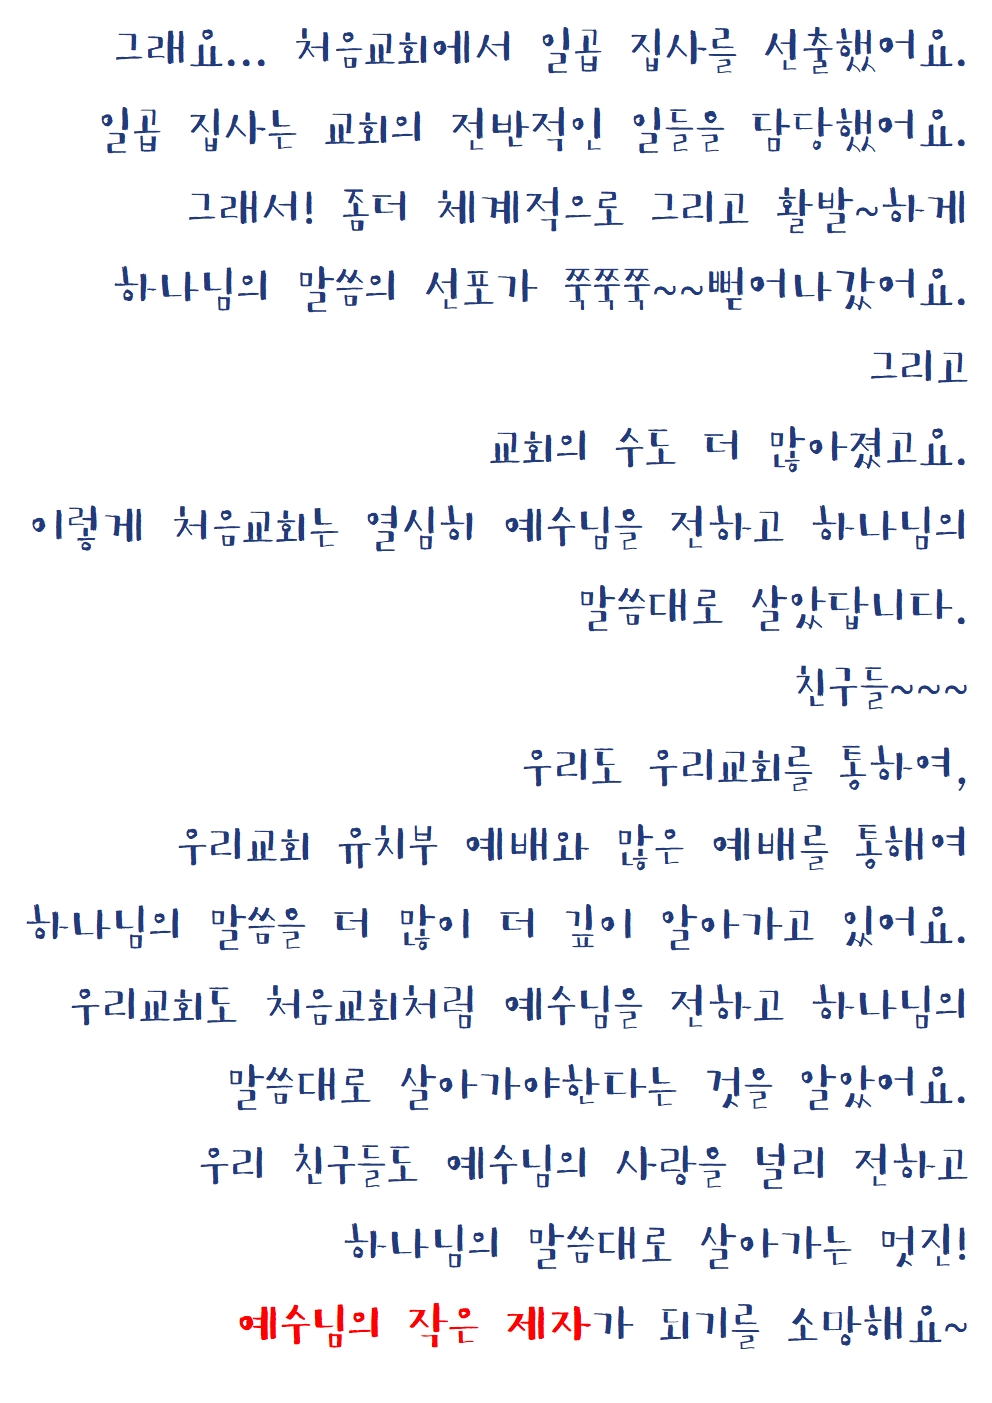 그래요... 처음교회에서 일곱 집사를 선출했어요.
일곱 집사는 교회의 전반적인 일들을 담당했어요.
그래서! 좀더 체계적으로 그리고 활발~하게
하나님의 말씀의 선포가 쭉쭉쭉~~뻗어나갔어요.
그리고
교회의 수도 더 많아졌고요.
이렇게 처음교회는 열심히 예수님을 전하고 하나님의
말씀대로 살았답니다.
친구들~~~
우리도 우리교회를 통하여,
우리교회 유치부 예배와 많은 예배를 통해여
하나님의 말씀을 더 많이 더 깊이 알아가고 있어요.
우리교회도 처음교회처럼 예수님을 전하고 하나님의
말씀대로 살아가야한다는 것을 알았어요.
우리 친구들도 예수님의 사랑을 널리 전하고
하나님의 말씀대로 살아가는 멋진!
예수님의 작은 제자가 되기를 소망해요~